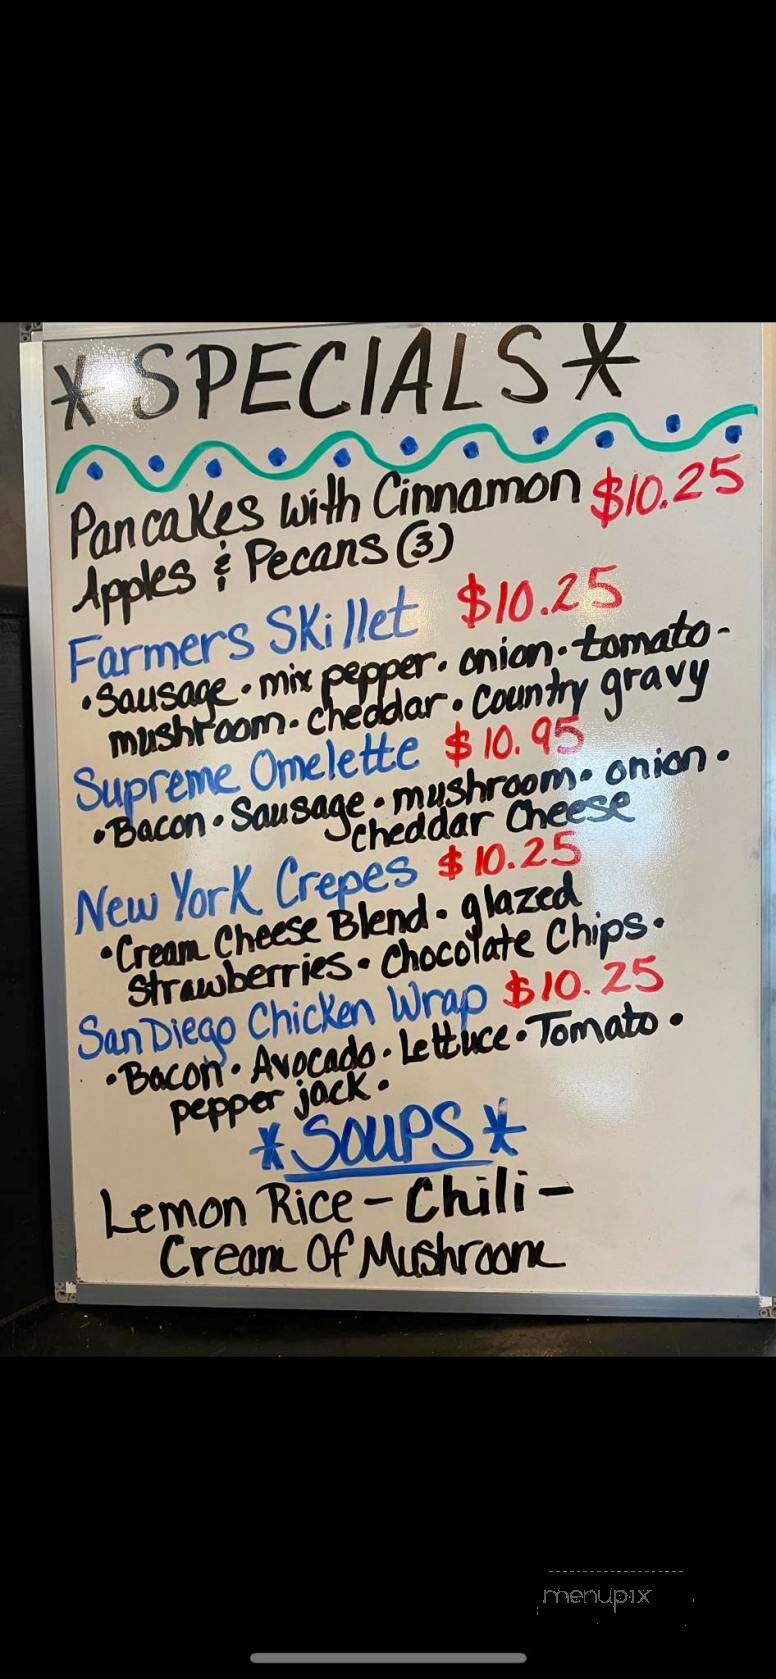 *SPECIALS*
Pancakes with Cinnamon $10.25
Apples & Pecans (3)
Farmers Skillet $10.25
•Sausage•mix pepper•onion•tomato-
mushroom•cheddar•country gravy
Supreme Omelette $10.95
•Bacon•Sausage•mushroom•onion•
cheddar Cheese
New York Crepes $10.25
•Cream Cheese Blend•glazed
Strawberries•Chocolate Chips•
San Diego Chicken Wrap $10.25
•Bacon•Avocado•Lettuce•Tomato•
pepper jack•
*SOUPS*
Lemon Rice - Chili -
Cream Of Mushroom
menupix